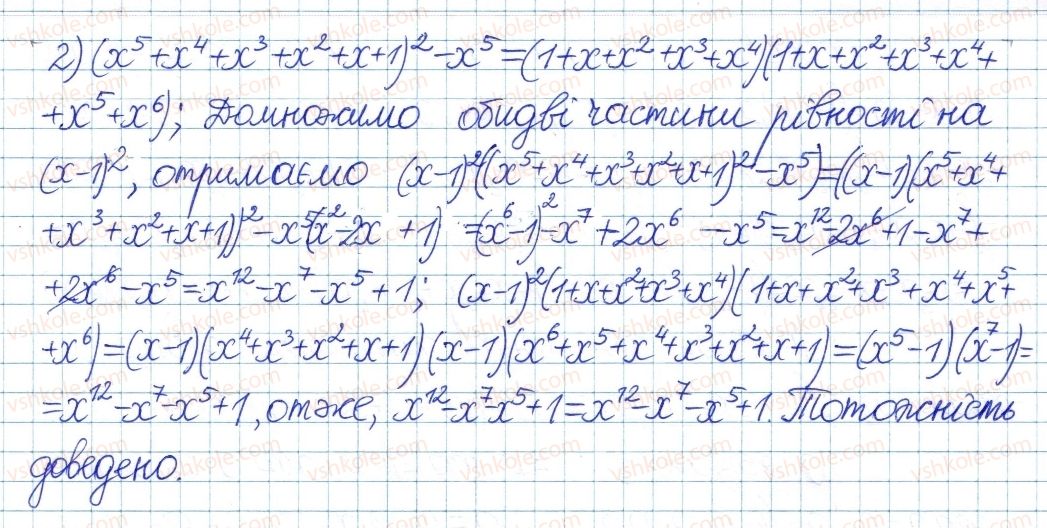 2) (x⁵+x⁴+x³+x²+x+1)²-x⁵=(1+x+x²+x³+x⁴)(1+x+x²+x³+x⁴+
+x⁵+x⁶); Домножимо обидві частини рівності на
(x-1)², отримаємо (x-1)²((x⁵+x⁴+x³+x²+x+1)²-x⁵)=((x-1)(x⁵+x⁴+
+x³+x²+x+1))²-x⁵(x²-2x+1)=(x⁶-1)²-x⁷+2x⁶-x⁵=x¹²-2x⁶+1-x⁷+
+2x⁶-x⁵=x¹²-x⁷-x⁵+1; (x-1)²(1+x+x²+x³+x⁴)(1+x+x²+x³+x⁴+x⁵+
+x⁶)=(x-1)(x⁴+x³+x²+x+1)(x-1)(x⁶+x⁵+x⁴+x³+x²+x+1)=(x⁵-1)(x⁷-1)=
=x¹²-x⁷-x⁵+1, отже, x¹²-x⁷-x⁵+1=x¹²-x⁷-x⁵+1. Тотожність
доведено.